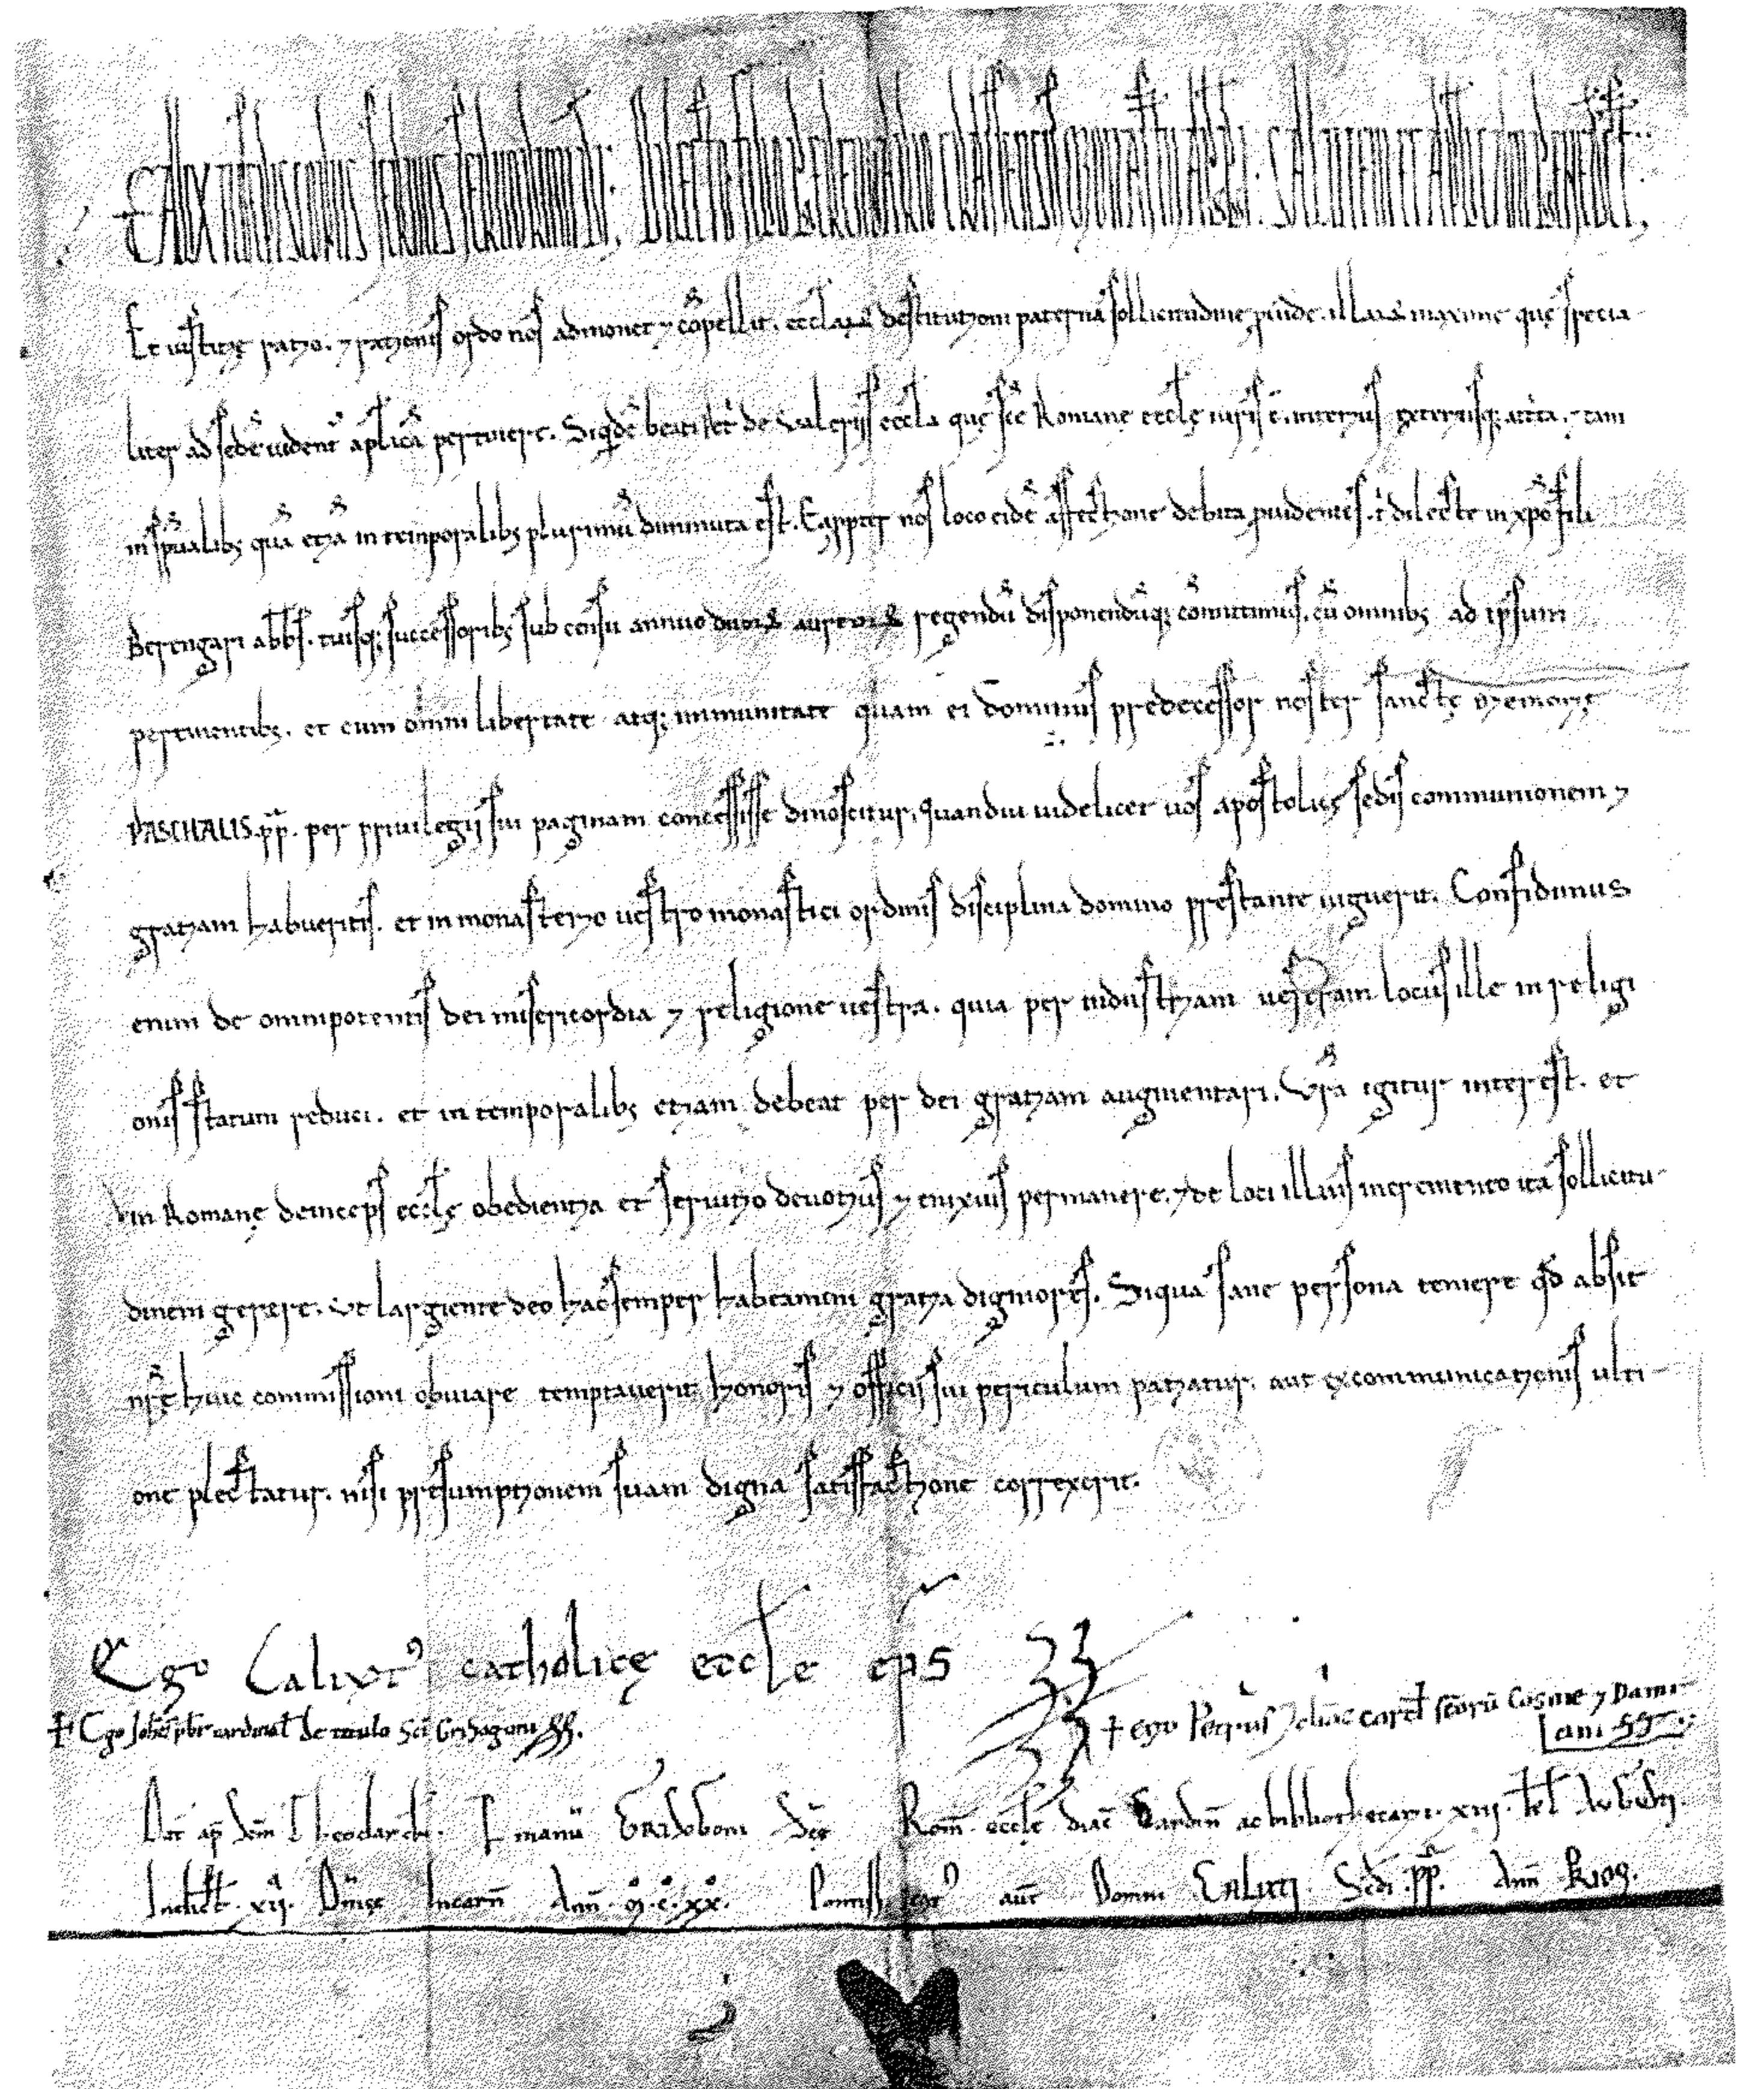 CALIXTUS EPISCOPUS SERVUS SERVORUM DI. DILECTO FILIO BERENGARIO CRASSENSIS MONASTERII ABBI. SALUTEM ET APLICAM BENEDICT.
Et iustitię ratio. ⁊ rationis ordo nos admonet ⁊ cōpellit. eccl̄aꝝ destitutioni paterna sollicitudine ꝓuidē. illaꝝ maxime quę specia-
liter ad sedē uident̄ ap̄licā pertinere. Siqͥdē beati Petͥ de Valeriis eccl̄a quę sc̄ę Romanę eccl̄ę iuris ē. interius exteriusq; attͥta. ⁊ tam
in sp̄ualibꝫ quā etiā in temporalibꝫ plurimū diminuta est. Eapp̄ter nos loco eidē affectione debita ꝓuidentes. tͥ dilecte in xp̄o fili
Berengari abb̄s. tuisq; successoribꝫ sub censu annuo duoꝝ aureoꝝ regendū disponendūq; cōmittimus. cū omnibꝫ ad ipsum
pertinentibꝫ. et cum omni libertate atq; immunitate quam ei dominus predecessor noster sanctę memorię
PASCHALIS pp̄. per priuilegii sui paginam concessisse dinoscitur. Quandiu uidelicet uos apostolicę sedis communionem ⁊
gratiam habueritis. et in monasterio uestro monastici ordinis disciplina domino prestante uiguerit. Confidimus
enim de omnipotentis dei misericordia ⁊ religione uestra. quia per industriam uestram locus ille in religi
onis statum reduci. et in temporalibꝫ etiam debeat per dei gratiam augmentari. Vr̄a igitur interest. et
in Romanę deinceps eccl̄ę obedientia et seruitio deuotius ⁊ enixius permanere. ⁊ de loci illius incremento ita sollicitu-
dinem gerere. Vt largiente deo hac semper habeamini gratia digniores. Siqua sane persona temere qd̄ absit
nr̄ę huic commissioni obuiare temptauerit honoris ⁊ officii sui periculum patiatur. aut excommunicationis ulti-
one plectatur. nisi presumptionem suam digna satisfactione correxerit.
Ego Calixt᾽ catholicę eccl̄e ep̄s SS
† Ego Joh̄s p̄br cardinal̄ de titulo Sc̄i Grisogoni SS.
† Ego Petrus card̄ sc̄orū Cosme ⁊ Dami-
ani SS
Dat̄ ap̄ manū Grisogoni Sc̄ę Rom̄. eccl̄e diac̄ Cardin̄ ac bibliothecarii. xiii. kl̄
Indict. xii. Dn̄icę Incarn̄ Ann̄. M.C.XX. Pontificat᾽ aut̄ Domni Calixti Scd̄i. pp̄. Ann̄